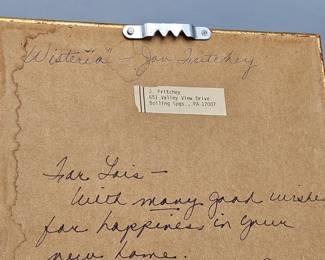 "Wisteria" - Jan Fritchey
J. Fritchey
651 Valley View Drive
Boiling Spgs., PA 17007
For Lois -
With many good wishes
for happiness in your
new home.